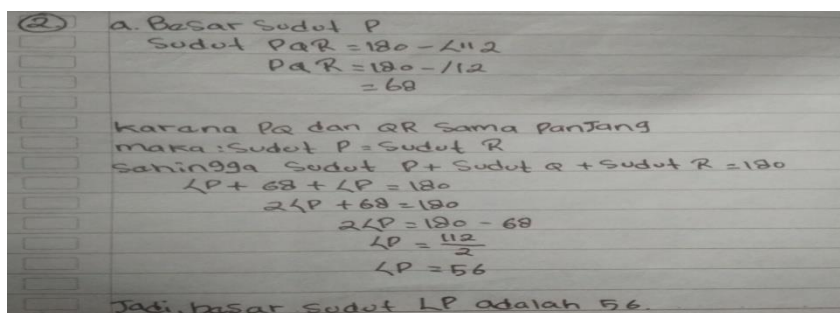 ② a. Besar Sudut P
Sudut PQR = 180 - ∠112
PQR = 180 - 112
= 68
Karana PQ dan QR Sama Panjang
maka : Sudut P = Sudut R
Sahingga Sudut P + Sudut Q + Sudut R = 180
∠P + 68 + ∠P = 180
2∠P + 68 = 180
2∠P = 180 - 68
∠P = 112/2
∠P = 56
Jadi, besar sudut ∠P adalah 56.